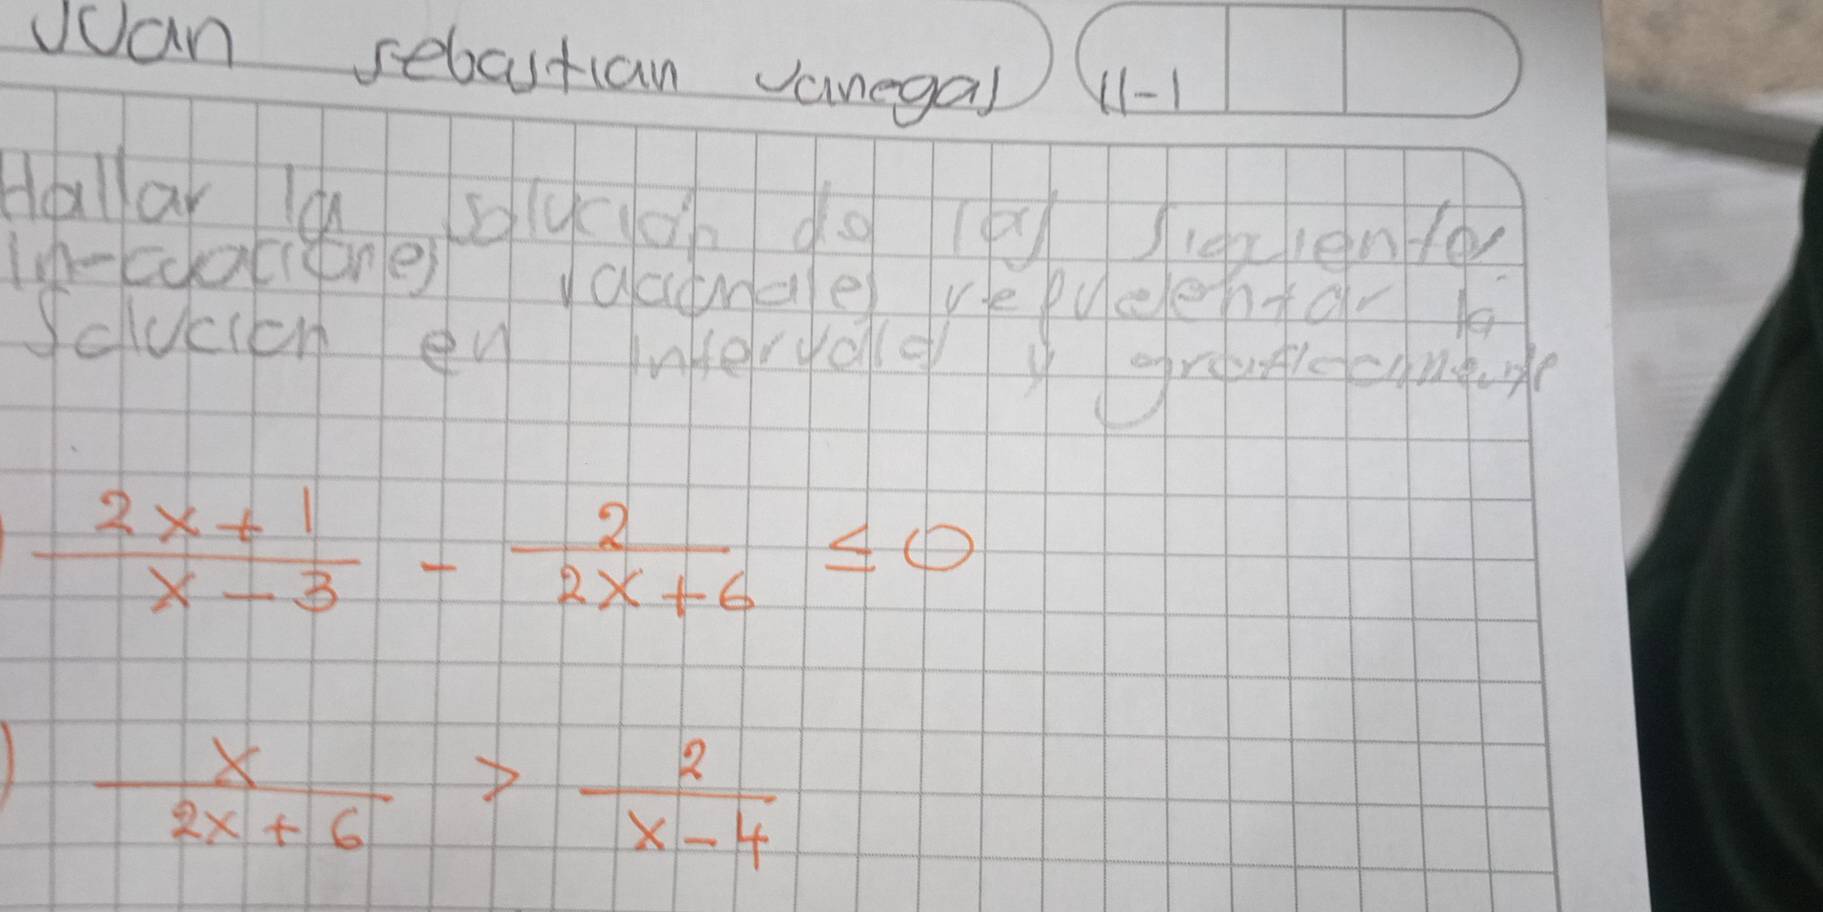 Juan sebastian vanegas 11-1
Hallar la solucion de las siguientes
in-ecuaciones racionales representar la
Solucion en intervalos y graficamente
) 2x+1 / x-3 - 2 / 2x+6 ≤ 0
) x / 2x+6 > 2 / x-4